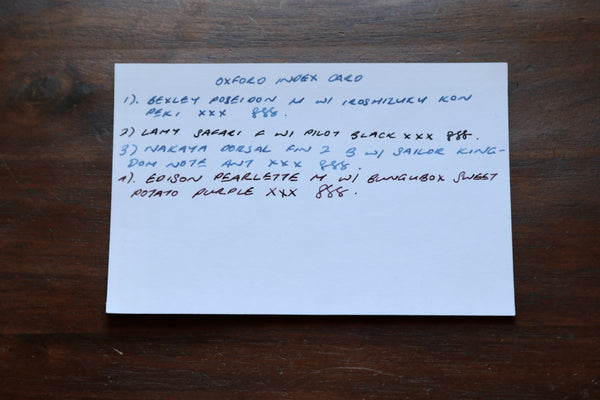 OXFORD INDEX CARD
1). BEXLEY POSEIDON M W/ IROSHIZUKU KON
PEKI XXX 888.
2) LAMY SAFARI F W/ PILOT BLACK XXX 888.
3) NAKAYA DORSAL FIN 2 B W/ SAILOR KING-
DOM NOTE ANT XXX 888.
4). EDISON PEARLETTE M W/ BUNGUBOX SWEET
POTATO PURPLE XXX 888.